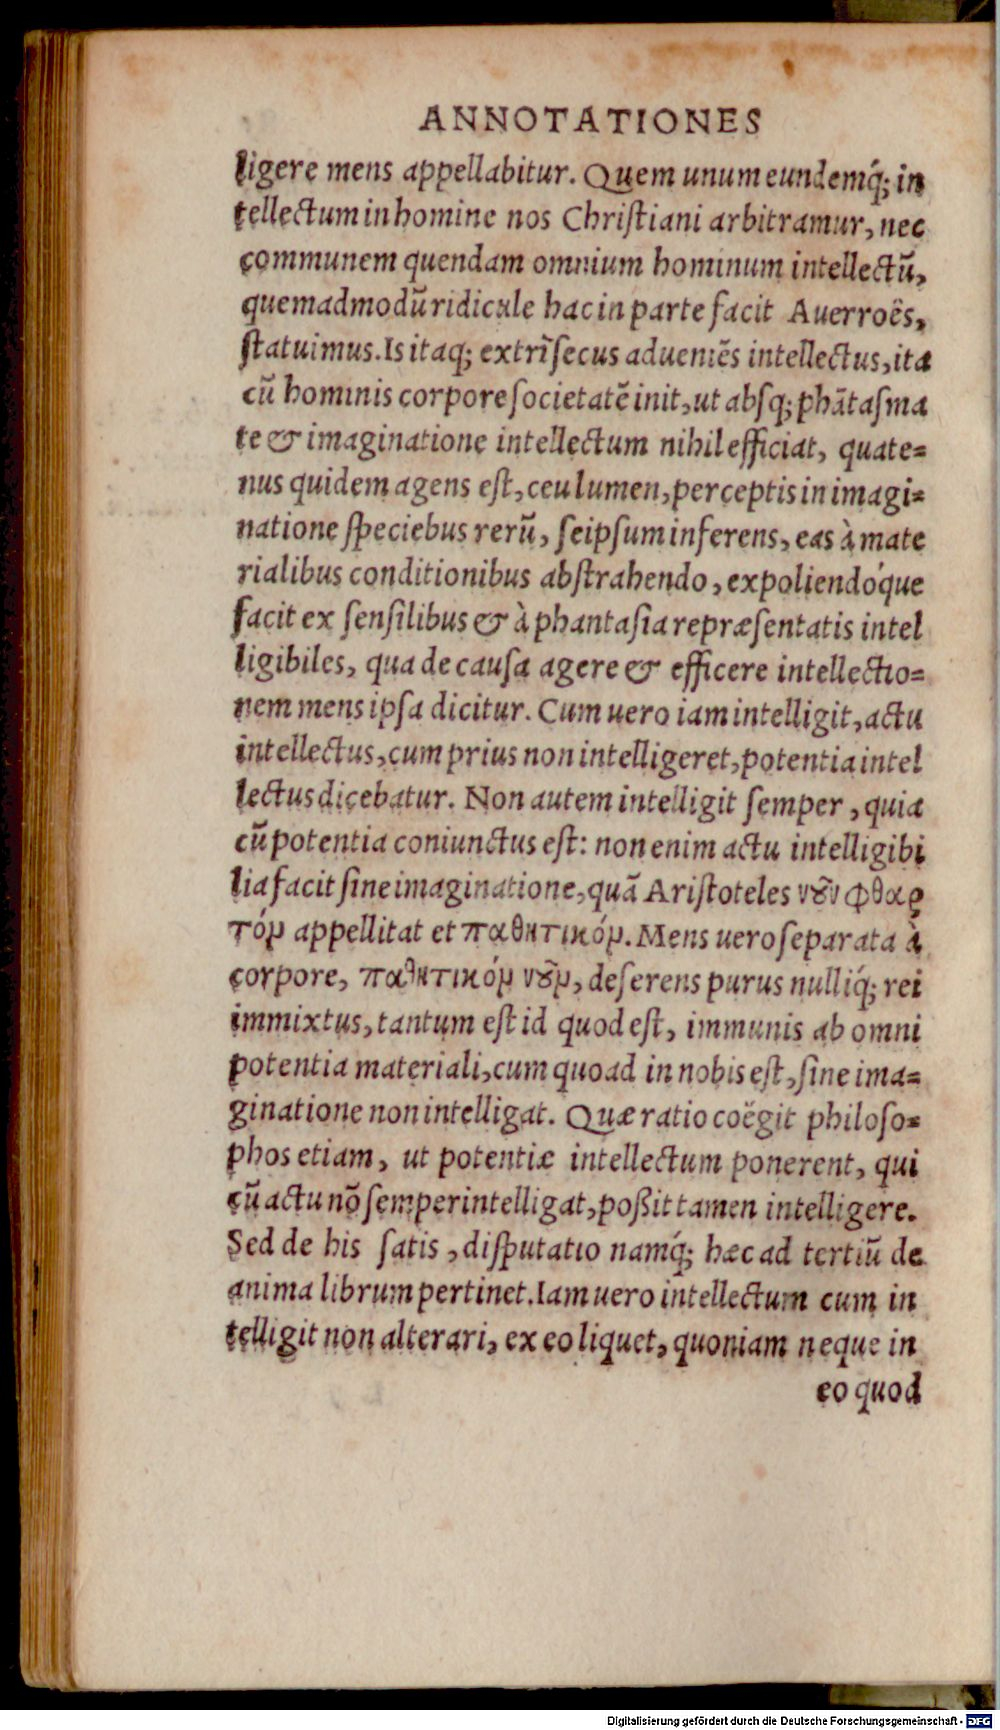 ANNOTATIONES
ligere mens appellabitur. Quem unum eundemq́; in
tellectum in homine nos Christiani arbitramur, nec
communem quendam omnium hominum intellectũ,
quemadmodũ ridicule hac in parte facit Auerroës,
statuimus. Is itaq; extrĩsecus adueniẽs intellectus, ita
cũ hominis corpore societatẽ init, ut absq; phãtasma
te & imaginatione intellectum nihil efficiat, quate-
nus quidem agens est, ceu lumen, perceptis in imagi-
natione speciebus rerũ, seipsum inferens, eas à mate
rialibus conditionibus abstrahendo, expoliendóque
facit ex sensilibus & à phantasia repræsentatis intel
ligibiles, qua de causa agere & efficere intellectio-
nem mens ipsa dicitur. Cum uero iam intelligit, actu
intellectus, cum prius non intelligeret, potentia intel
lectus dicebatur. Non autem intelligit semper, quia
cũ potentia coniunctus est: non enim actu intelligibi
lia facit sine imaginatione, quã Aristoteles νοῦν φθαρ
τόν appellitat et παθητικόν. Mens uero separata à
corpore, παθητικόν νοῦν, deserens purus nulliq́; rei
immixtus, tantum est id quod est, immunis ab omni
potentia materiali, cum quoad in nobis est, sine ima-
ginatione non intelligat. Quæ ratio coëgit philoso-
phos etiam, ut potentiæ intellectum ponerent, qui
cũ actu nõ semper intelligat, poßit tamen intelligere.
Sed de his satis, disputatio namq́; hæc ad tertiũ de
anima librum pertinet. Iam uero intellectum cum in
telligit non alterari, ex eo liquet, quoniam neque in
eo quod
Digitalisierung gefördert durch die Deutsche Forschungsgemeinschaft - DFG